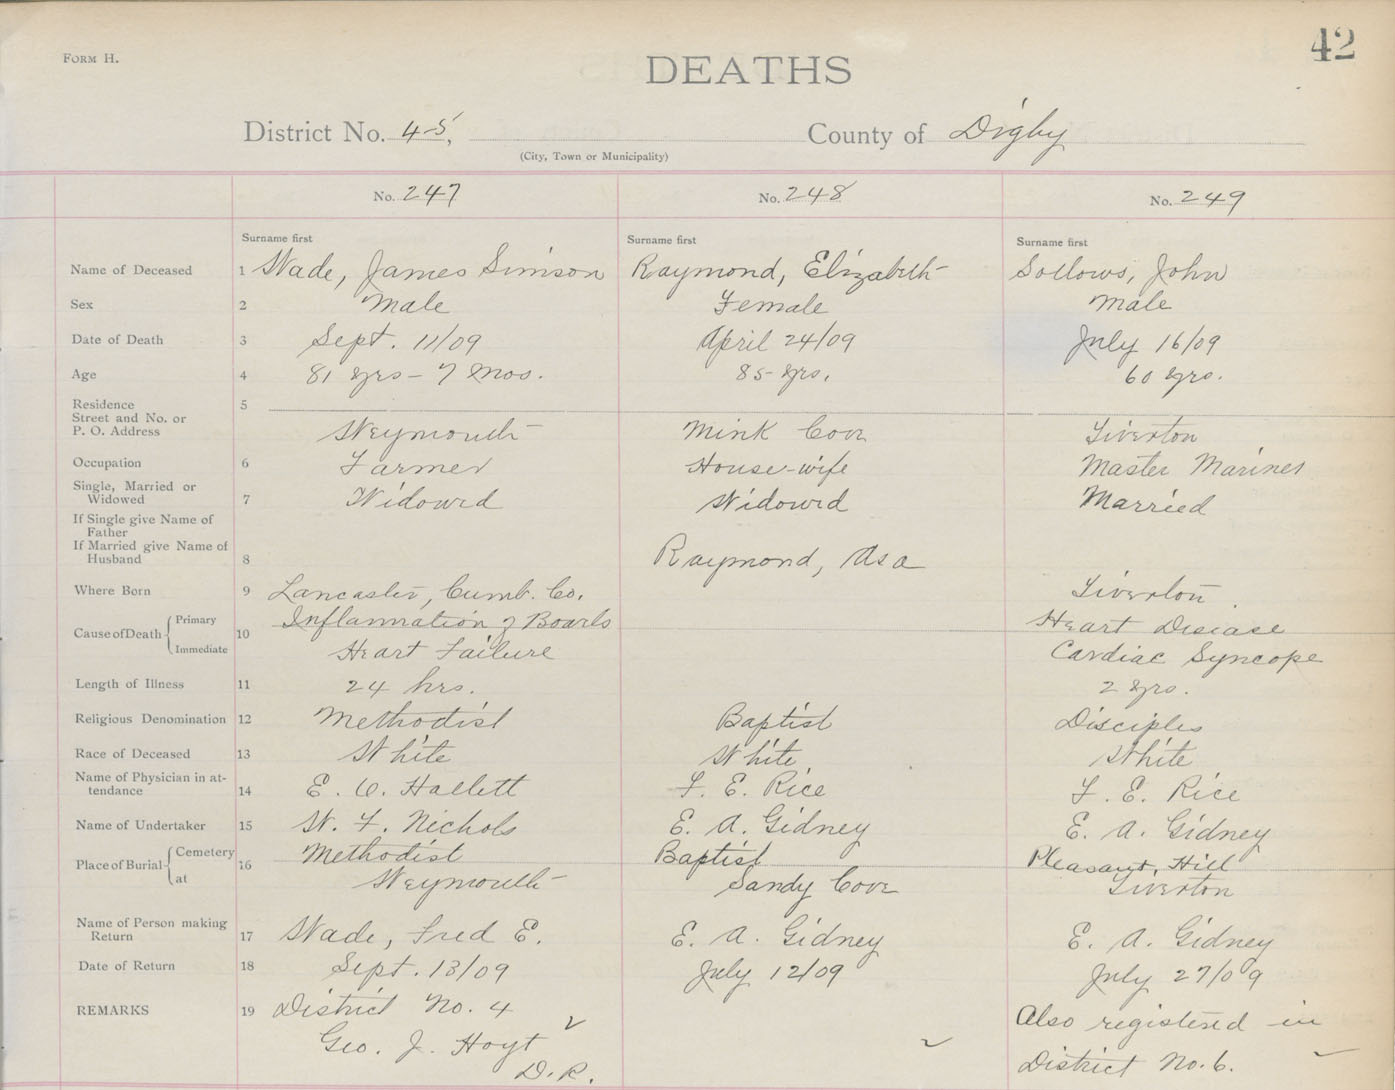 42
FORM H.
DEATHS
District No. 45, County of Digby
(City, Town or Municipality)
No. 247 No. 248 No. 249
Surname first Surname first Surname first
Name of Deceased 1 Wade, James Simson Raymond, Elizabeth Sollows, John
Sex 2 Male Female Male
Date of Death 3 Sept. 11/09 April 24/09 July 16/09
Age 4 81 yrs - 7 Mos. 85 yrs. 60 yrs.
Residence 5
Street and No. or
P. O. Address Weymouth Mink Cove Tiverton
Occupation 6 Farmer House-wife Master Mariner
Single, Married or
Widowed 7 Widowed Widowed Married
If Single give Name of
Father
If Married give Name of
Husband 8 Raymond, Asa
Where Born 9 Lancaster, Cumb. Co. Tiverton
Cause of Death Primary 10 Inflamnation of Boarls Heart Disease
Immediate Heart Failure Cardiac Syncope
Length of Illness 11 24 hrs. 2 yrs.
Religious Denomination 12 Methodist Baptist Disciples
Race of Deceased 13 White White White
Name of Physician in at-
tendance 14 E. O. Hallett F. E. Rice F. E. Rice
Name of Undertaker 15 W. F. Nichols E. A. Gidney E. A. Gidney
Place of Burial Cemetery 16 Methodist Baptist Pleasant Hill
at Weymouth Sandy Cove Tiverton
Name of Person making
Return 17 Wade, Fred E. E. A. Gidney E. A. Gidney
Date of Return 18 Sept. 13/09 July 12/09 July 27/09
REMARKS 19 District No. 4 Also registered in
Geo. J. Hoyt District No. 6.
D.R.